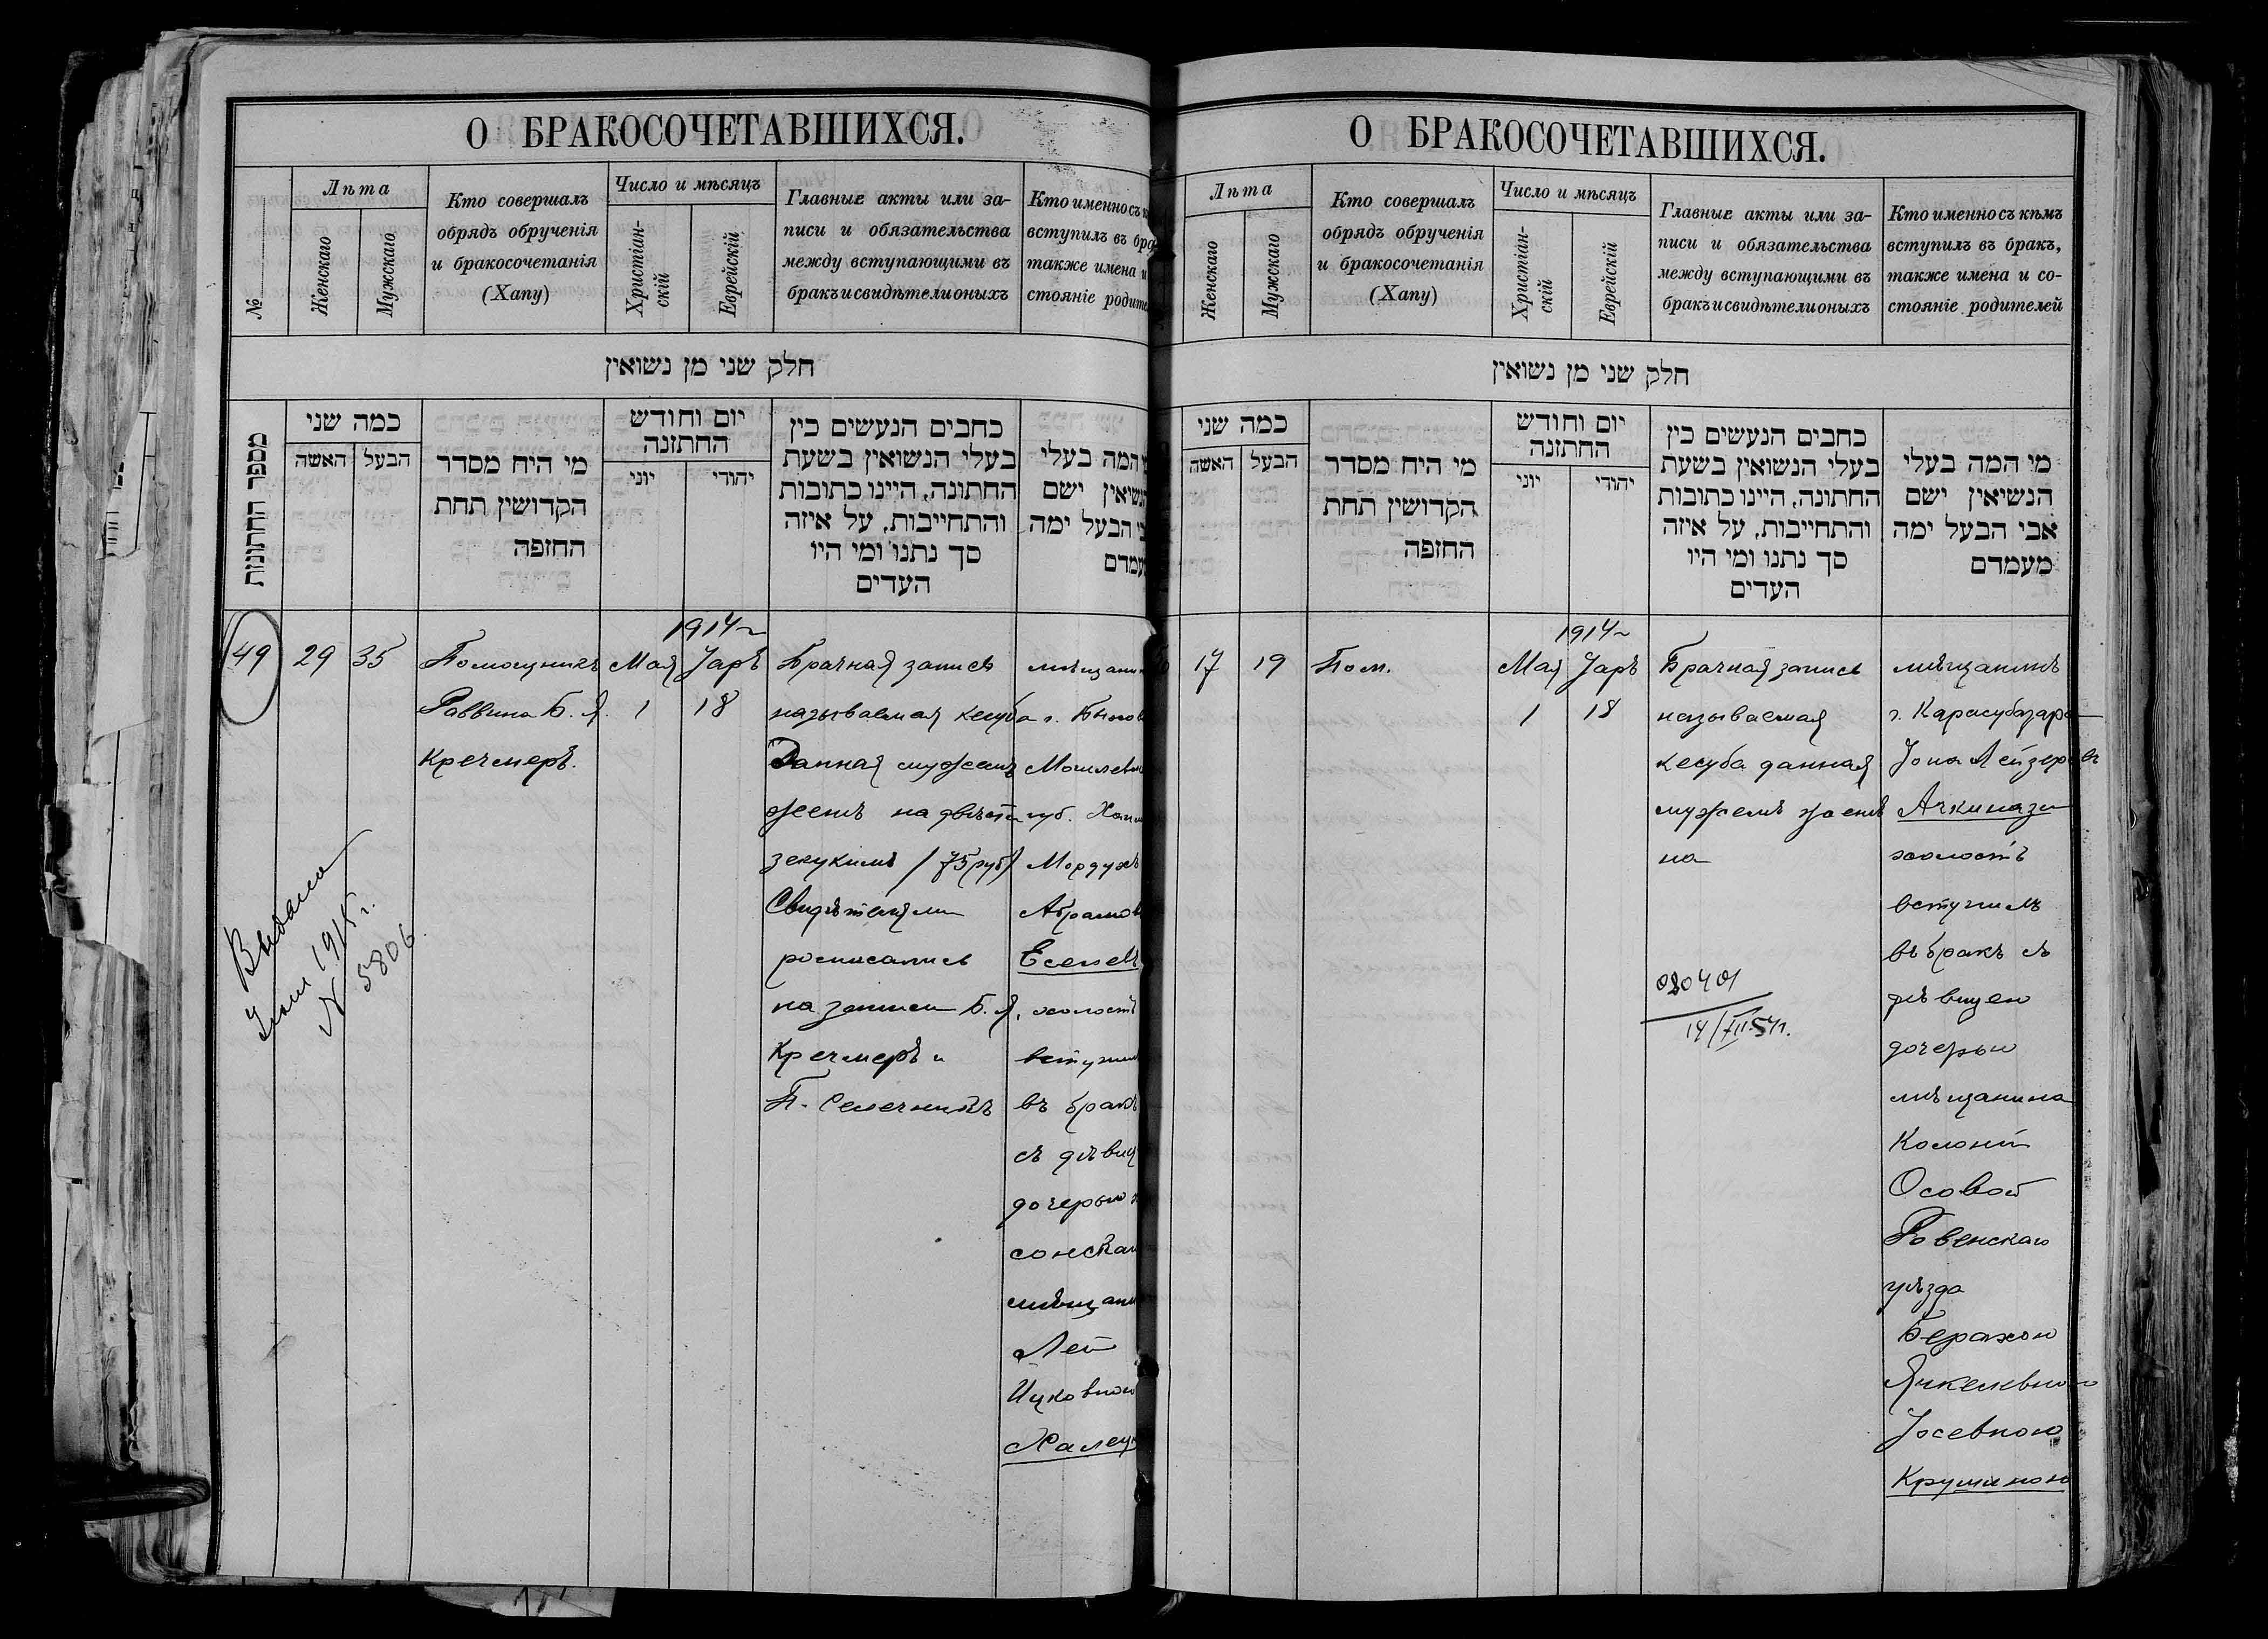 О БРАКОСОЧЕТАВШИХСЯ.
№
Лѣта
Женскаго
Мужскаго
Кто совершалъ
обрядъ обрученія
и бракосочетанія
(Хапу)
Число и мѣсяцъ
Христіан-
скій
Еврейскій
Главные акты или за-
писи и обязательства
между вступающими въ
бракъ и свидѣтели оныхъ
Кто именно съ
вступилъ въ
также имена и
стояніе
חלק שני מן נשואין
מספר החתונות
כמה שני
האשה
הבעל
מי היח מסדר
הקדושין תחת
החזפה
יום וחודש
החתזנה
יוני
יהודי
כחבים הנעשים כין
בעלי הנשואין בשעת
החתונה, היינו כתובות
והתחייבות, על איזה
סך נתנו ומי היו
העדים
המה בעלי
ישם
הבעל ימה
49
29
35
Помощникъ
Раввина Б. Я.
Кречмеръ.
1914
Мая
1
Јаръ
18
Брачная запись
называемая кесуба
Данная мужемъ
женѣ на двѣсти
зекукимъ (75 руб)
Свидѣтелями
росписались
на записи Б. Я.
Кречмеръ и
П. Селечникъ
г.
губ.
Мордухъ
холостъ
въ бракъ
съ
дочерью
Лей
Ицковною
Выдана
1915 г.
№ 5806
О БРАКОСОЧЕТАВШИХСЯ.
Лѣта
Женскаго
Мужскаго
Кто совершалъ
обрядъ обрученія
и бракосочетанія
(Хапу)
Число и мѣсяцъ
Христіан-
скій
Еврейскій
Главные акты или за-
писи и обязательства
между вступающими въ
бракъ и свидѣтели оныхъ
Кто именно съ кѣмъ
вступилъ въ бракъ,
также имена и со-
стояніе родителей
חלק שני מן נשואין
כמה שני
האשה
הבעל
מי היח מסדר
הקדושין תחת
החזפה
יום וחודש
החתזנה
יוני
יהודי
כחבים הנעשים כין
בעלי הנשואין בשעת
החתונה, היינו כתובות
והתחייבות, על איזה
סך נתנו ומי היו
העדים
מי המה בעלי
הנשיאין ישם
אבי הבעל ימה
מעמדם
17
19
Пом.
1914
Мая
1
Јаръ
18
Брачная запись
называемая
кесуба данная
мужемъ женѣ
на
мѣщанинъ
г. Карасубазара
Јона Лейзеровъ
Ачкинази
холостъ
вступилъ
въ бракъ съ
дѣвицею
дочерью
мѣщанина
Колоніи
Осовой
Ровенскаго
уѣзда
Берахою
Јосевною